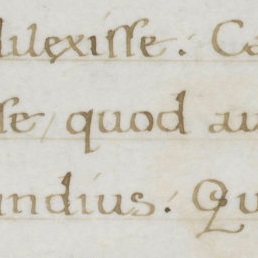 dilexisse. Ca
se, quod au
undius. Qu